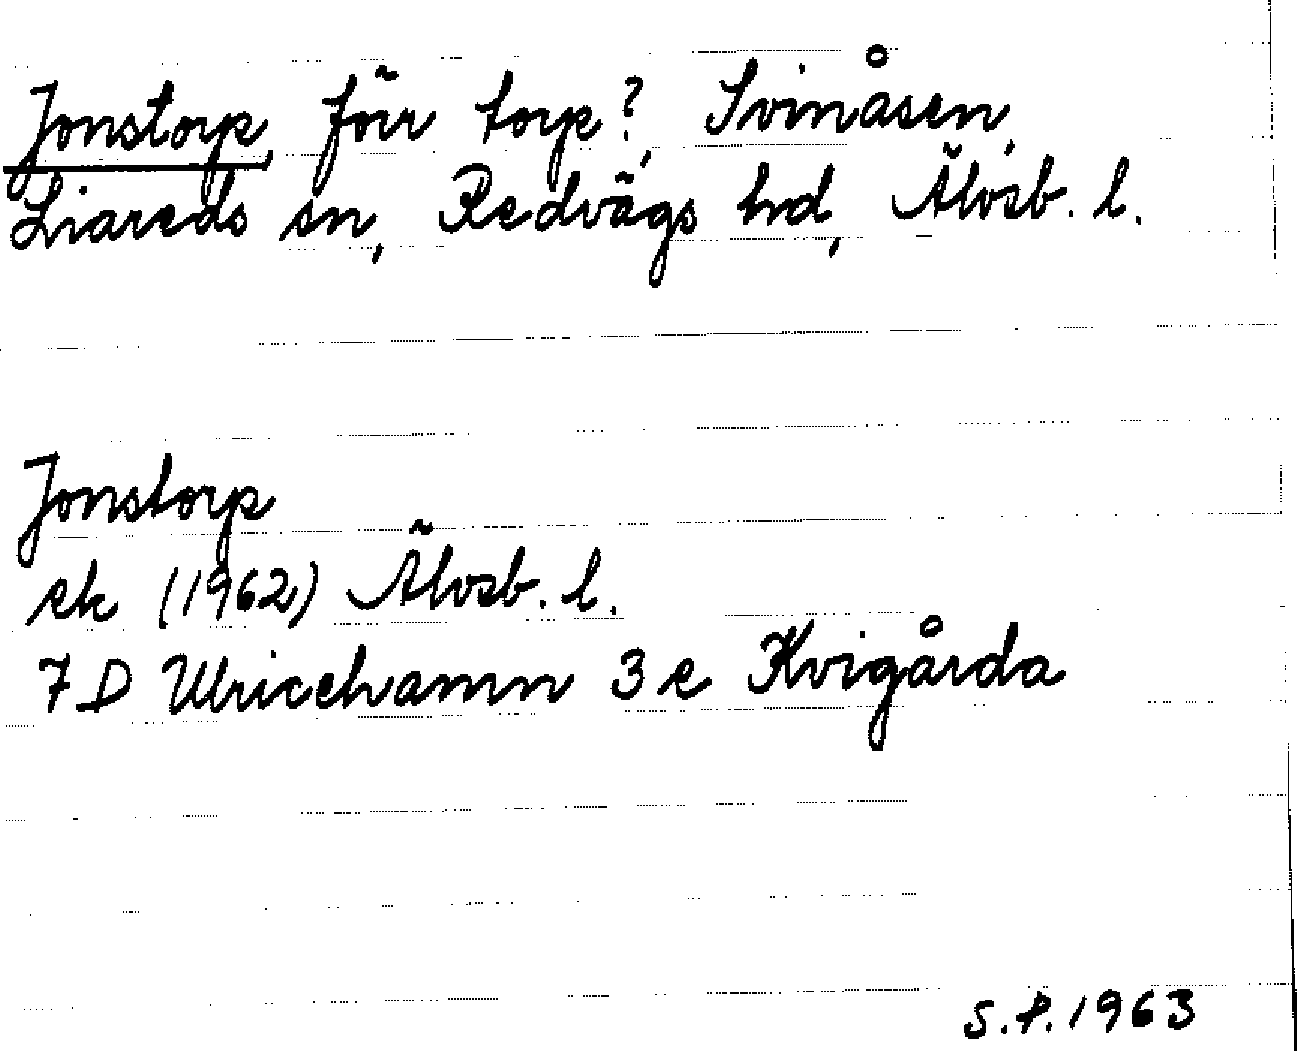 Jonstorp, förr torp?, Svinåsen,
Liareds sn, Redvägs hd, Älvsb. l.
Jonstorp
ek (1962) Älvsb. l.
7 D Ulricehamn 3 e Kvigårda
S.P. 1963